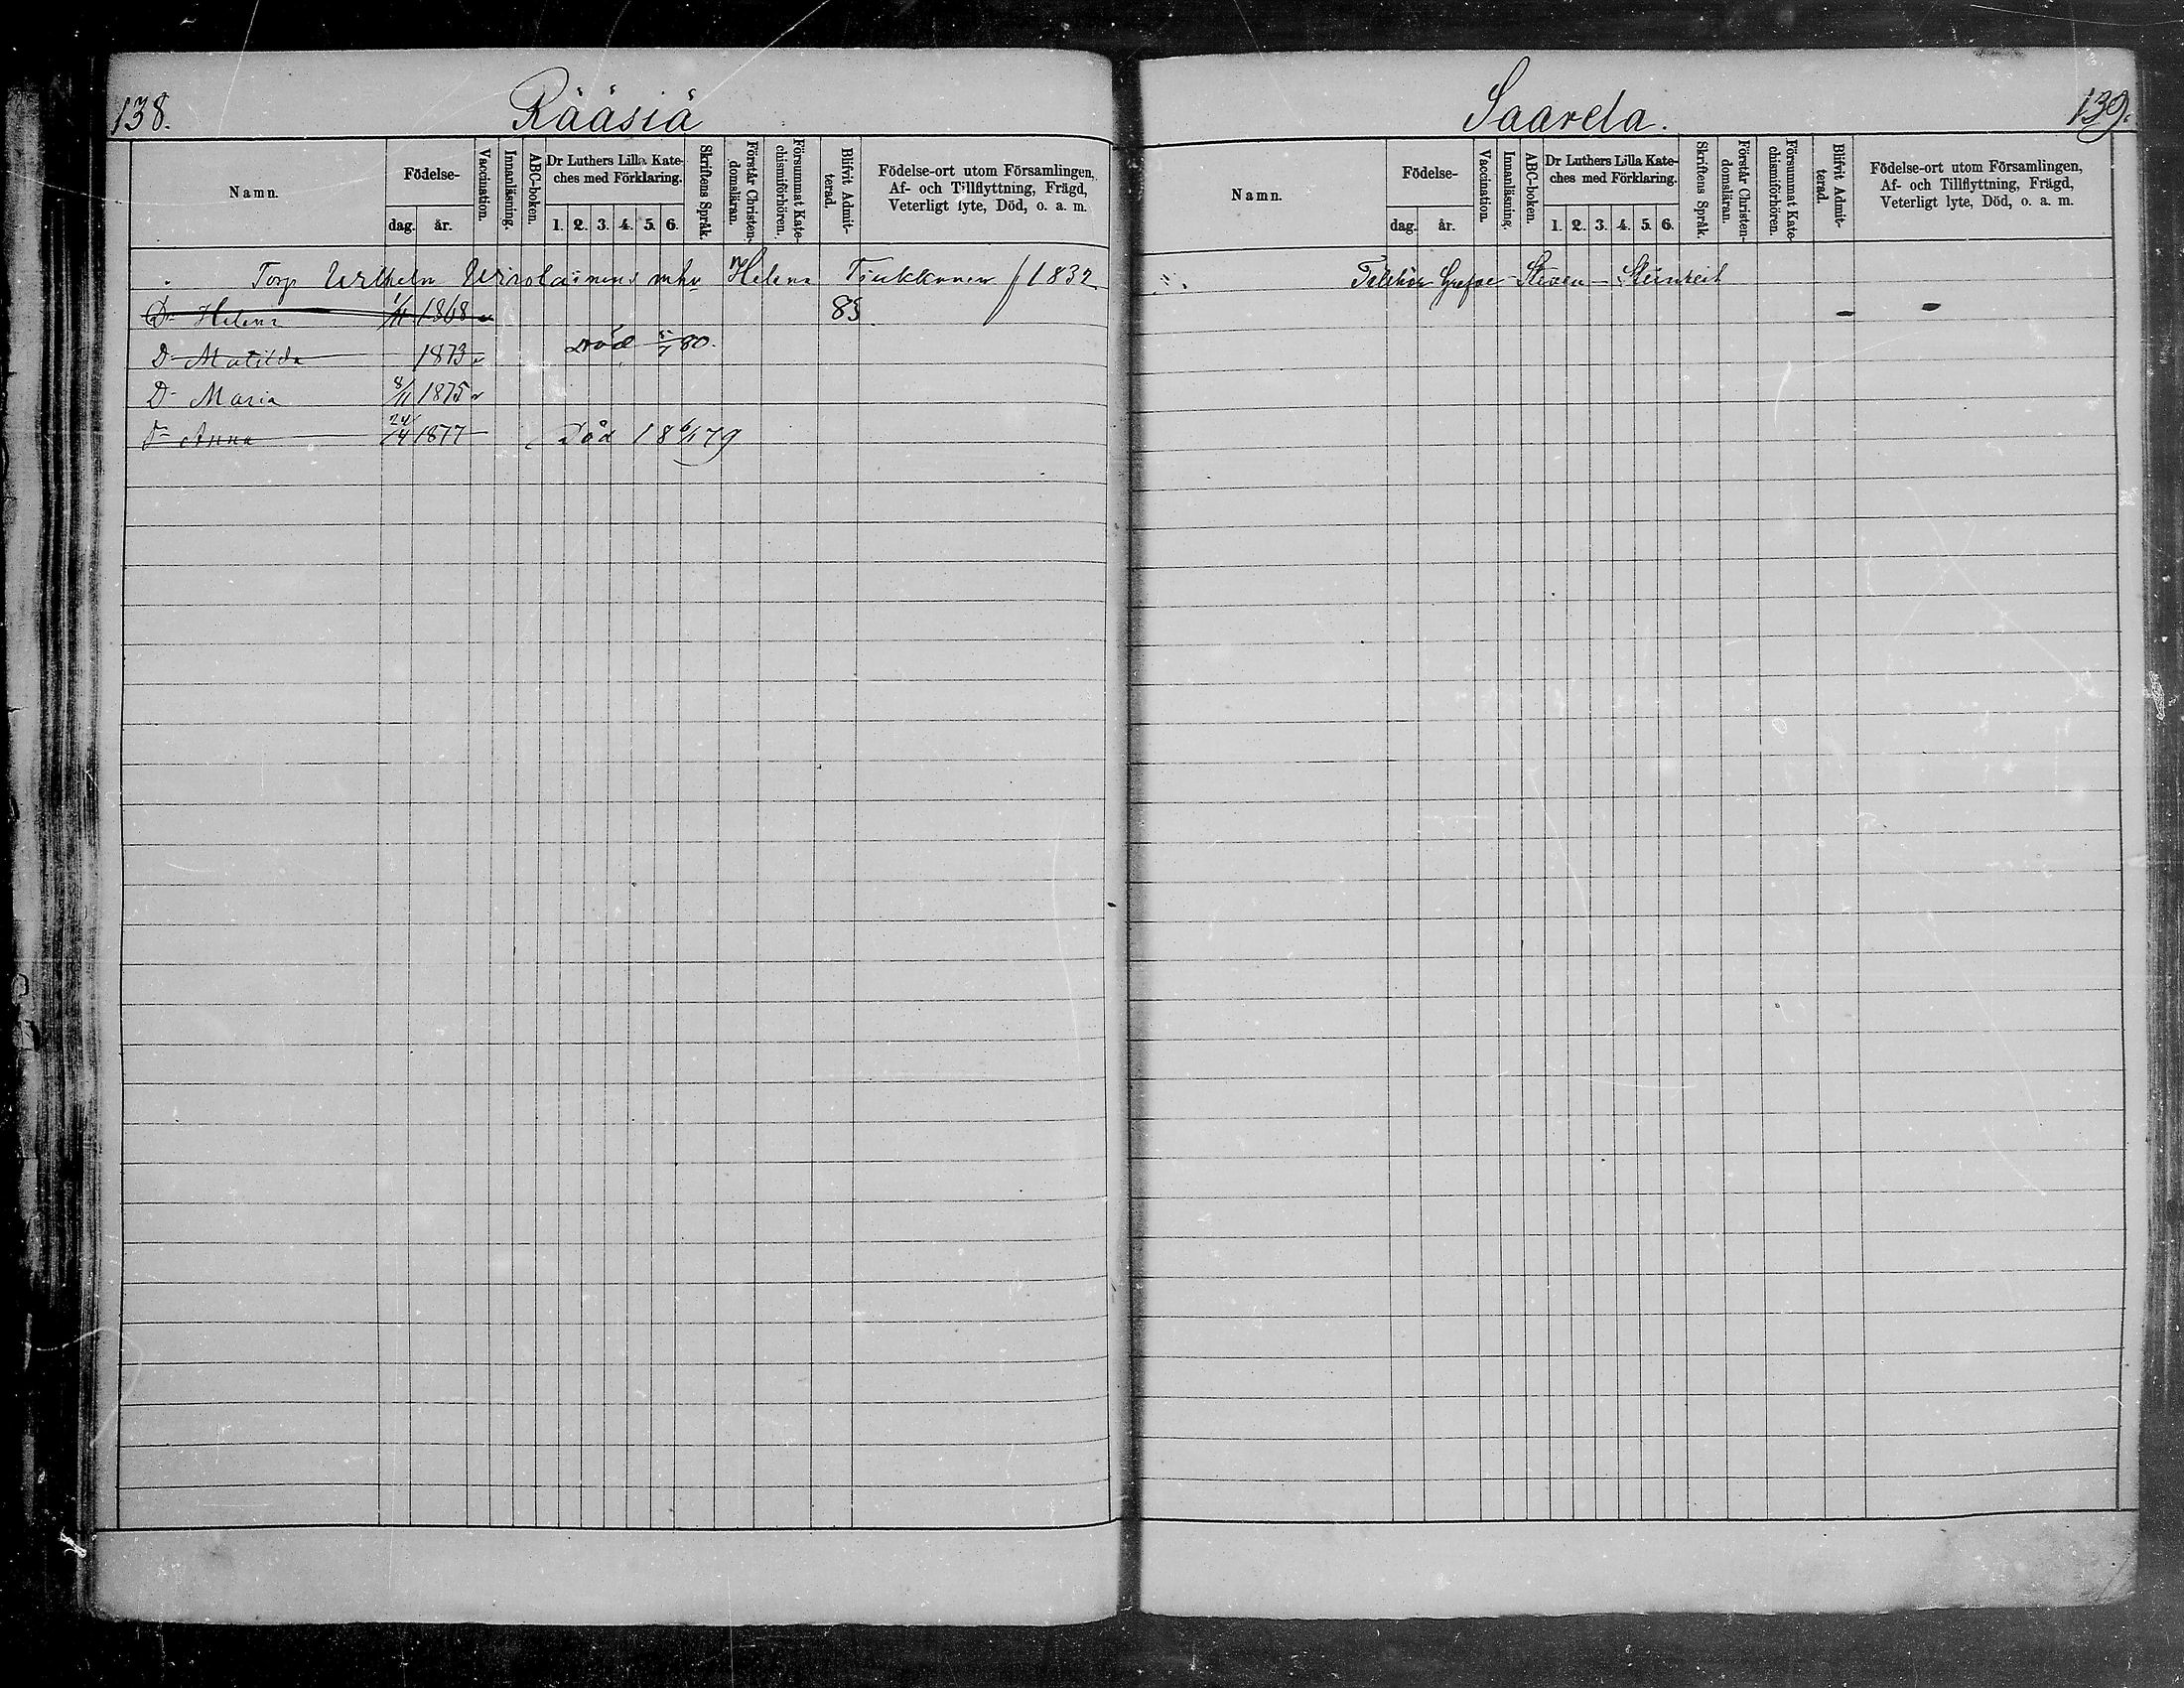 138.
Rääsiä
Namn.
Födelse-
dag.
år.
Vaccination.
Innanläsning.
ABC-boken.
Dr Luthers Lilla Kate-
ches med Förklaring.
1. 2. 3. 4. 5. 6.
Skriftens Språk.
Förstår Christen-
domsläran.
Försummat Kate-
chismiförhören.
Blifvit Admit-
terad.
Födelse-ort utom Församlingen,
Af- och Tillflyttning, Frägd,
Veterligt lyte, Död, o. a. m.
Torp Wilhelm Wirolainens Helena f 1832
D- Helena 1/11 1868 85
D- Matilda 1873 Död 80.
D- Maria 8/11 1875
D- Anna 24/4 1877 Död 18 6/1 79
Saarela.
139.
Namn.
Födelse-
dag.
år.
Vaccination.
Innanläsning.
ABC-boken.
Dr Luthers Lilla Kate-
ches med Förklaring.
1. 2. 3. 4. 5. 6.
Skriftens Språk.
Förstår Christen-
domsläran.
Försummat Kate-
chismiförhören.
Blifvit Admit-
terad.
Födelse-ort utom Församlingen,
Af- och Tillflyttning, Frägd,
Veterligt lyte, Död, o. a. m.
Tillhör Grefve Steven - Steinheil